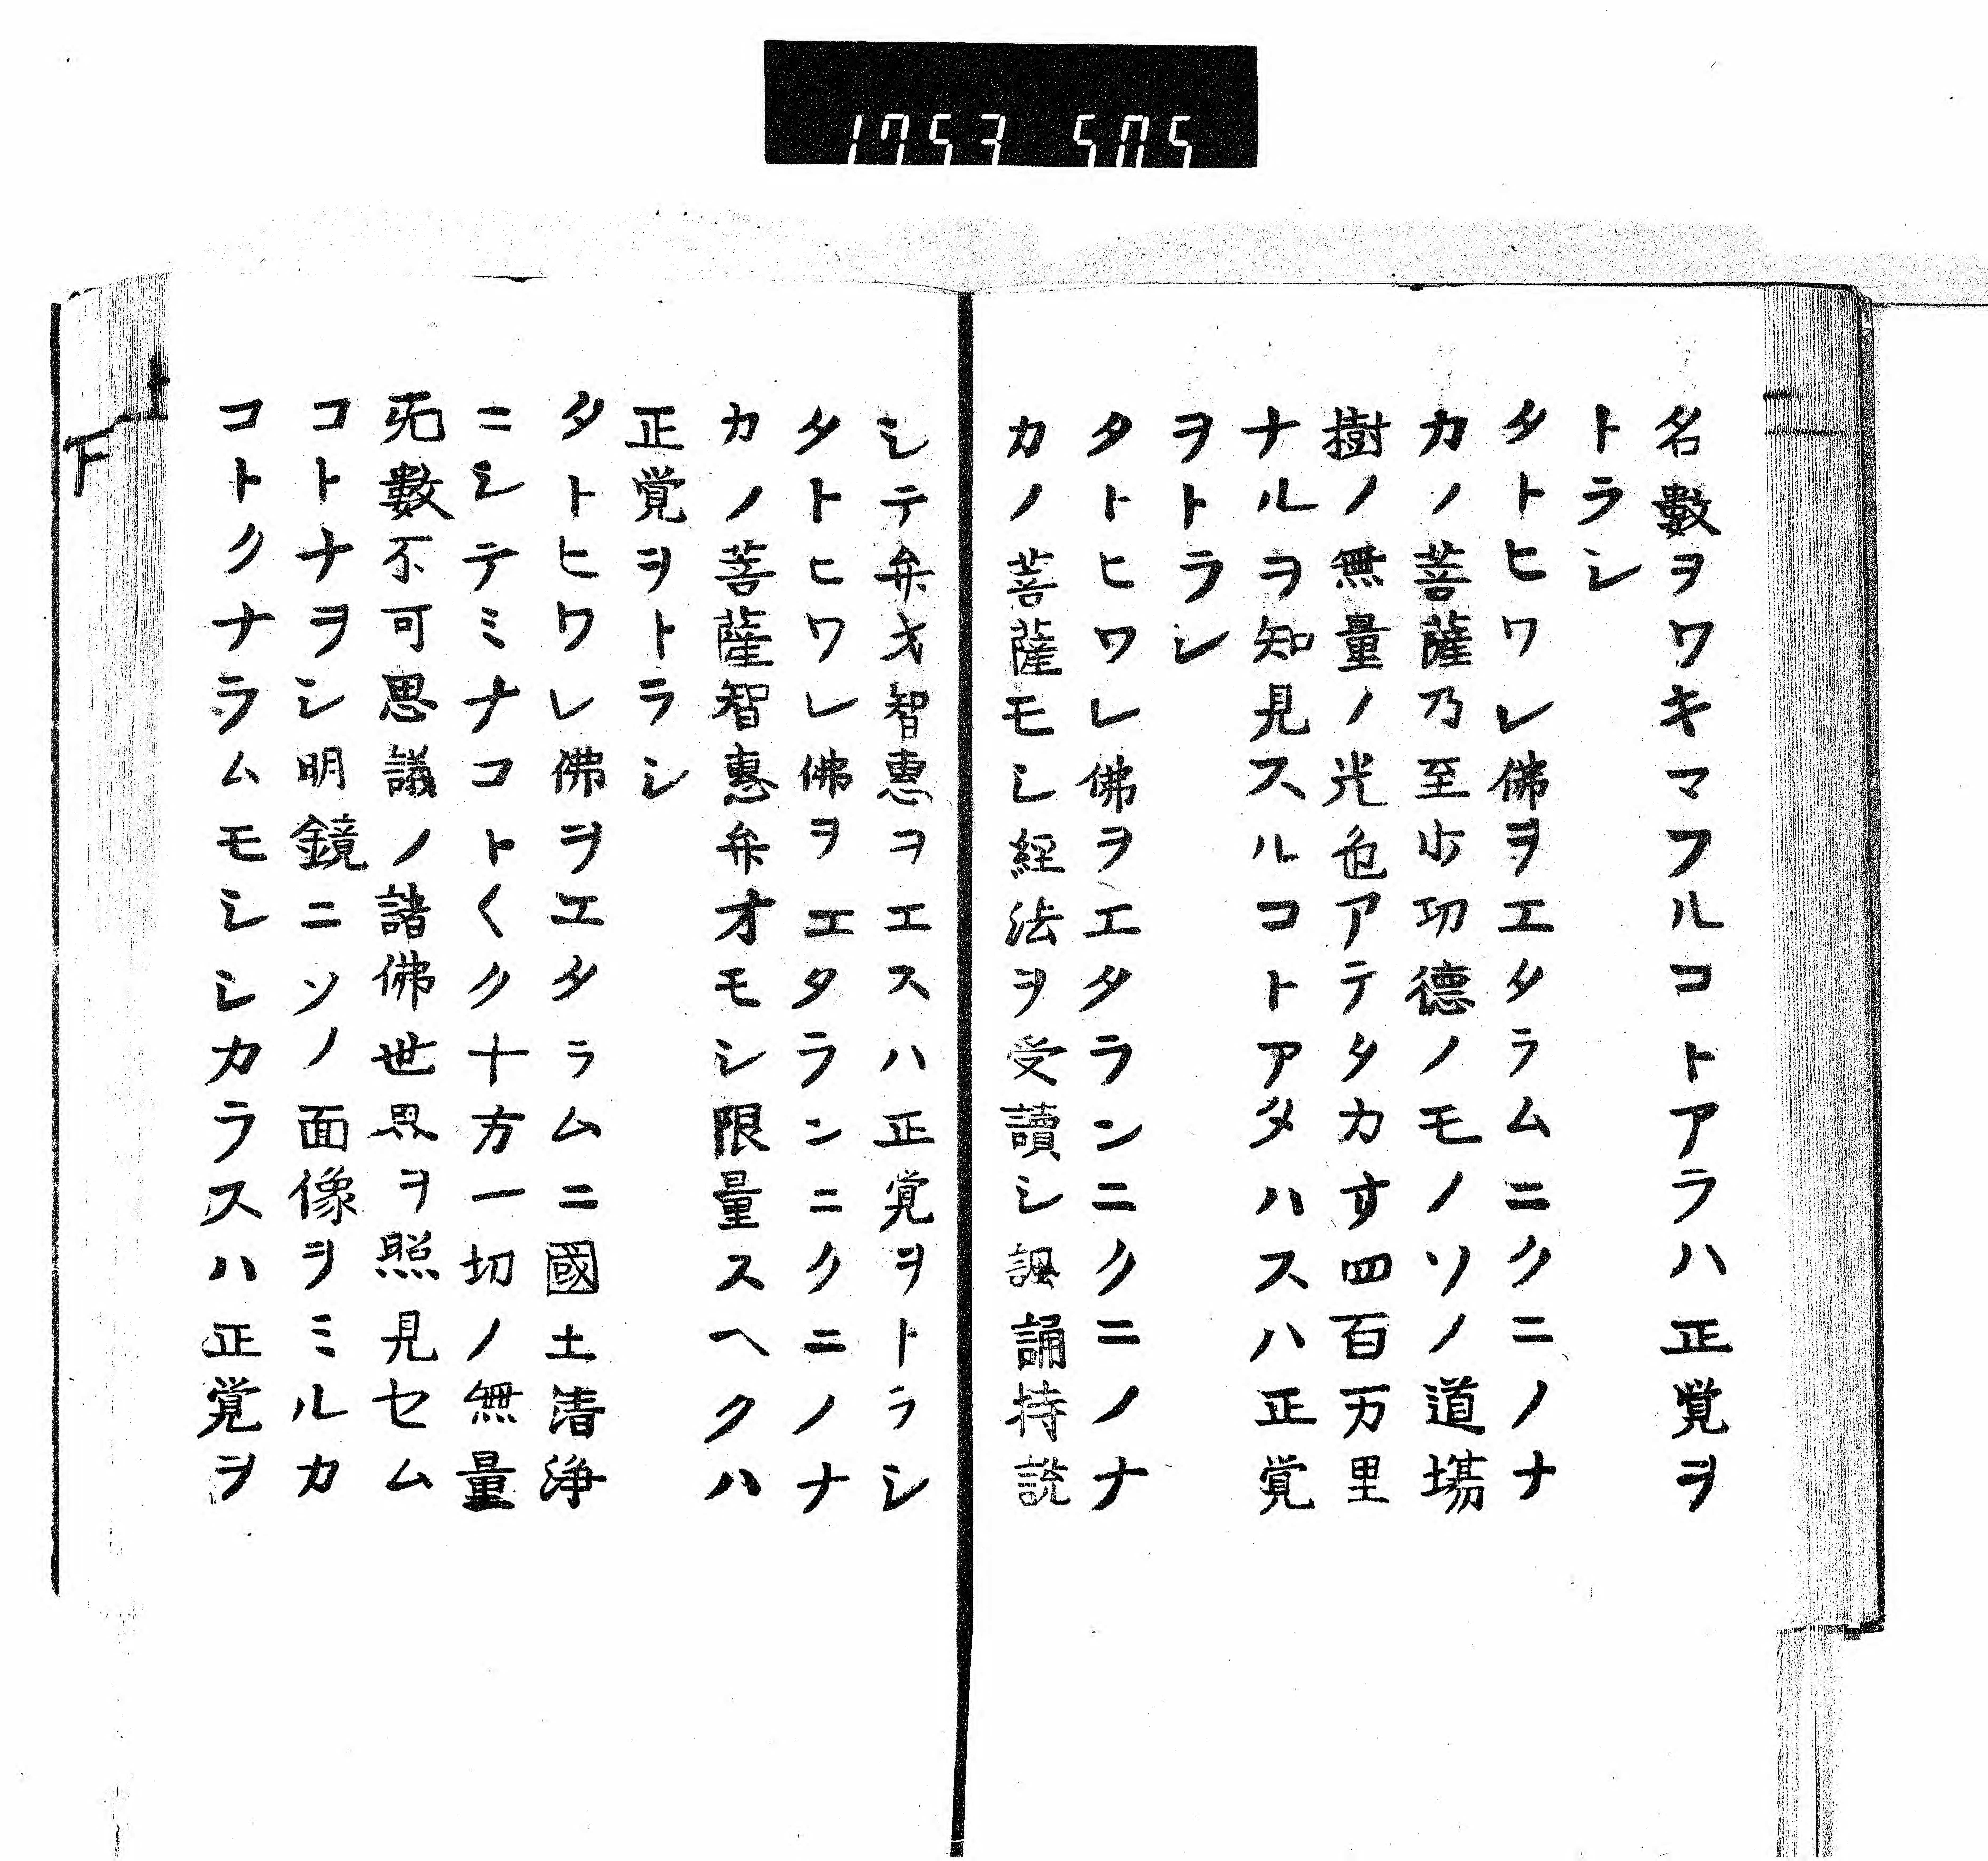 1753 505
名數ヲワキマフルコトアラハ正覚ヲ
トラシ
タトヒワレ佛ヲエタラムニクニノナ
カノ菩薩乃至少功德ノモノソノ道場
樹ノ無量ノ光色アテタカす四百万里
ナルヲ知見スルコトアタハスハ正覚
ヲトラシ
タトヒワレ佛ヲエタランニクニノナ
カノ菩薩モシ経法ヲ受讀シ諷誦持説
シテ弁才智惠ヲエスハ正覚ヲトラシ
タトヒワレ佛ヲエタランニクニノナ
カノ菩薩智惠弁才モシ限量スヘクハ
正覚ヲトラシ
タトヒワレ佛ヲエタラムニ國土清浄
ニシテミナコト〱ク十方一切ノ無量
无數不可思議ノ諸佛世界ヲ照見セム
コトナヲシ明鏡ニソノ面像ヲミルカ
コトクナラムモシシカラスハ正覚ヲ
下